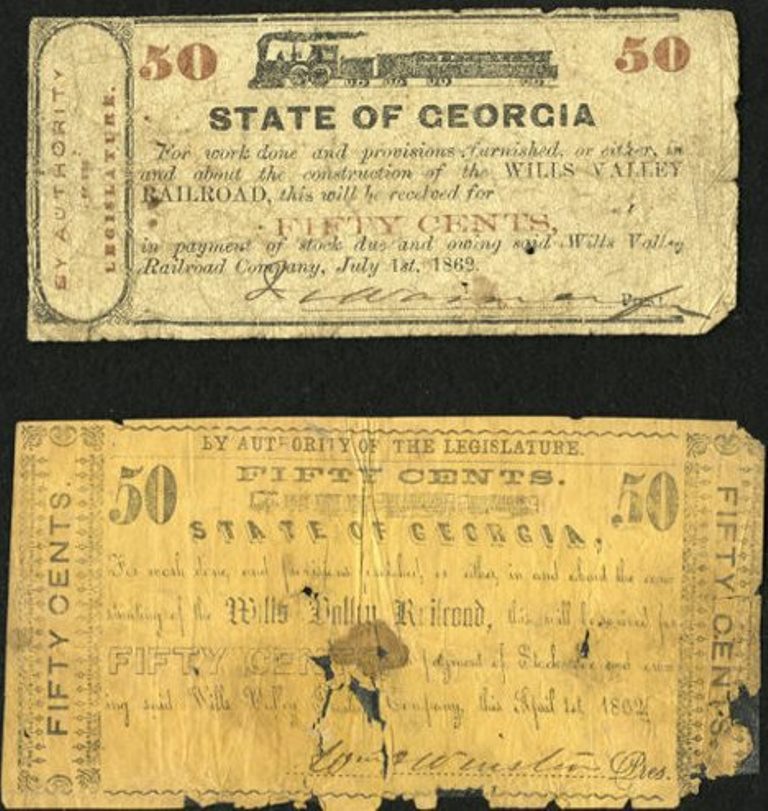 BY AUTHORITY
LEGISLATURE.
50 50
STATE OF GEORGIA
For work done and provisions furnished, or either, in
and about the construction of the WILLS VALLEY
RAILROAD, this will be received for
FIFTY CENTS,
in payment of stock due and owing said Wills Valley
Railroad Company, July 1st, 1862.
Prest.
FIFTY CENTS.
BY AUTHORITY OF THE LEGISLATURE.
FIFTY CENTS.
50 50
STATE OF GEORGIA,
For work done, and furnished, or either, in and about the con-
structing of the Wills Valley Railroad, this will be received for
FIFTY CENTS payment of Stock due and ow-
ing said Wills Valley Company, this April 1st, 1862
Wm Winston Pres.
FIFTY CENTS.